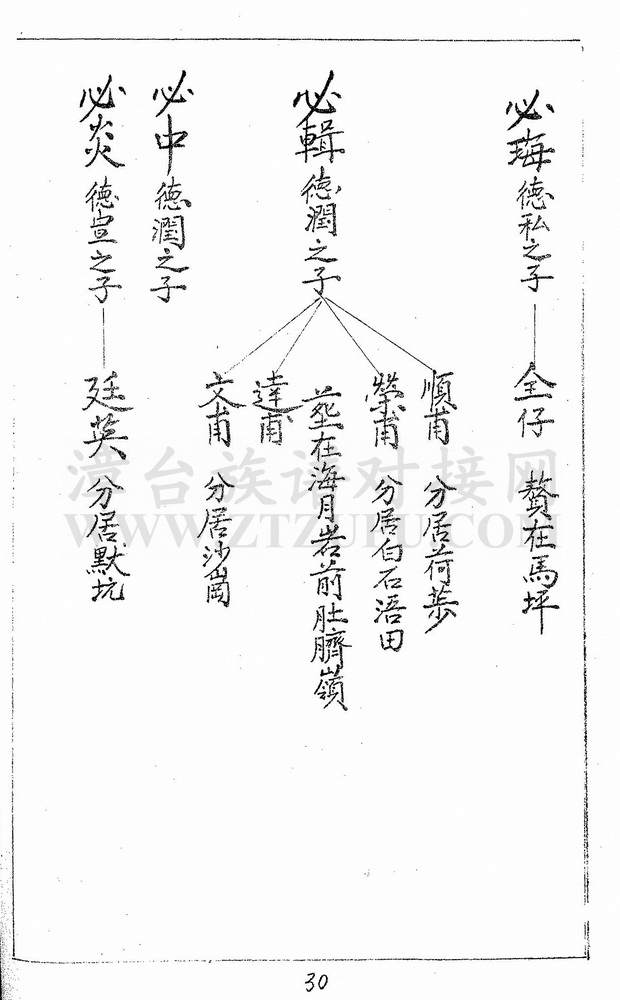 必珻德私之子
全仔 贅在馬坪
必輯德潤之子
順甫 分居荷㱏
榮甫 分居白石浯田
塟在海月岩前肚臍嶺
達甫
文甫 分居沙崗
必中德潤之子
必炎德宣之子
廷英 分居默坑
漳台族谱对接网
WWW.ZTZUPU.COM
30